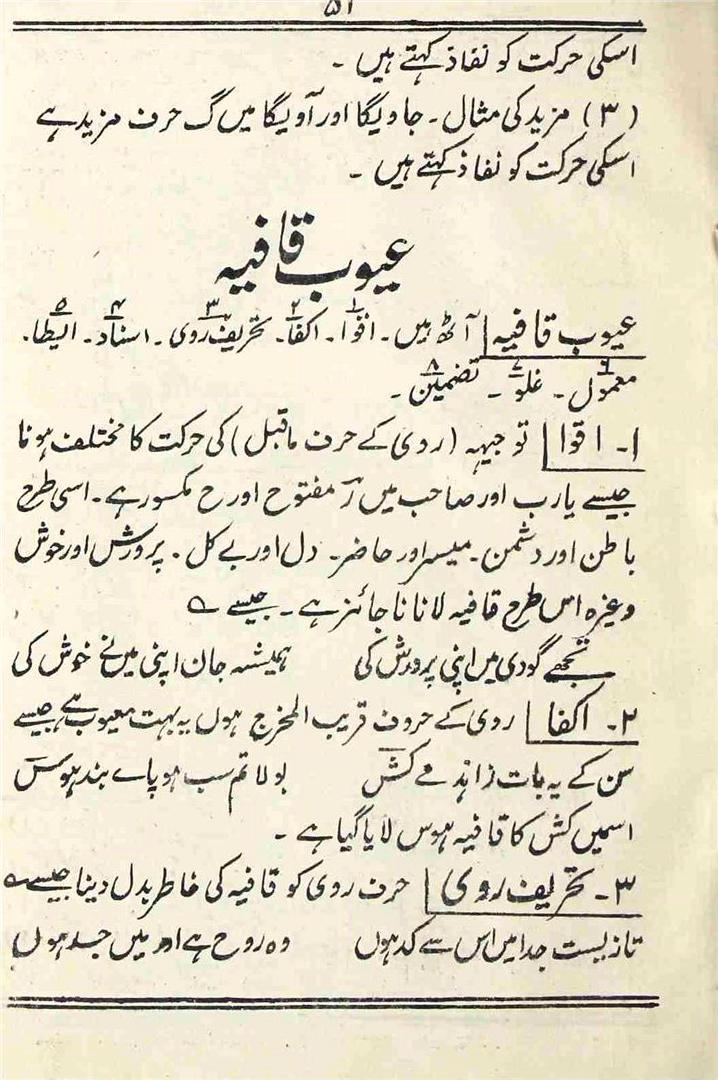 ۵۱
اسکی حرکت کو نفاذ کہتے ہیں ۔
(۳) مزید کی مثال ۔ جاویگا اور آویگا میں گ حرف مزید ہے
اسکی حرکت کو نفاذ کہتے ہیں ۔
عیوب قافیہ
عیوب قافیہ آٹھ ہیں ۔ ۱ اقوا ۔ ۲ اکفا ۔ ۳ تحریف روی ۔ ۴ اسناد ۔ ۵ ایطا ۔
۶ معمول ۔ ۷ غلو ۔ ۸ تضمین ۔
۱۔ اقوا توجیہہ (ردی کے حرف ماقبل) کی حرکت کا مختلف ہونا
جیسے یارب اور صاحب میں رَ مفتوح اور ح مکسور ہے ۔ اسی طرح
باطن اور دشمن ۔ میسر اور حاضر ۔ دل اور بے کل ۔ پرورش اور خوش
وغیرہ اس طرح قافیہ لانا ناجائز ہے ۔ جیسے ؎
تجھے گودی میں اپنی پرورش کی ہمیشہ جان اپنی میں نے خوش کی
۲۔ اکفا روی کے حروف قریب المخرج ہوں یہ بہت معیوب ہے جیسے
سن کے یہ بات زاہد مے کش بولا تم سب ہو پاے بند ہوس
اسمیں کش کا قافیہ ہوس لایا گیا ہے ۔
۳۔ تحریف روی حرف روی کو قافیہ کی خاطر بدل دینا جیسے ؎
تازیست جدا میں اس سے کد ہوں وہ روح ہے اور میں جسد ہوں